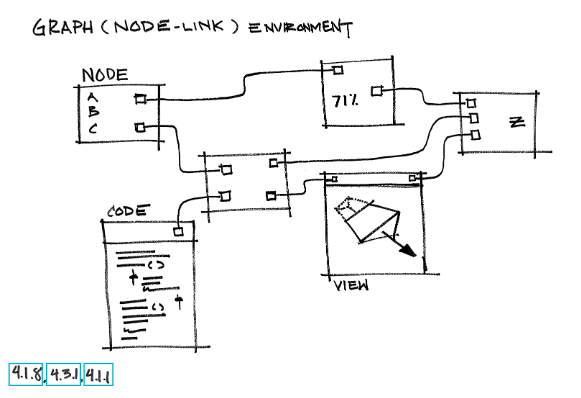 GRAPH (NODE-LINK) ENVIRONMENT
NODE
A
B
C
71%
Z
CODE
()
()
VIEW
4.1.8, 4.3.1, 4.1.1